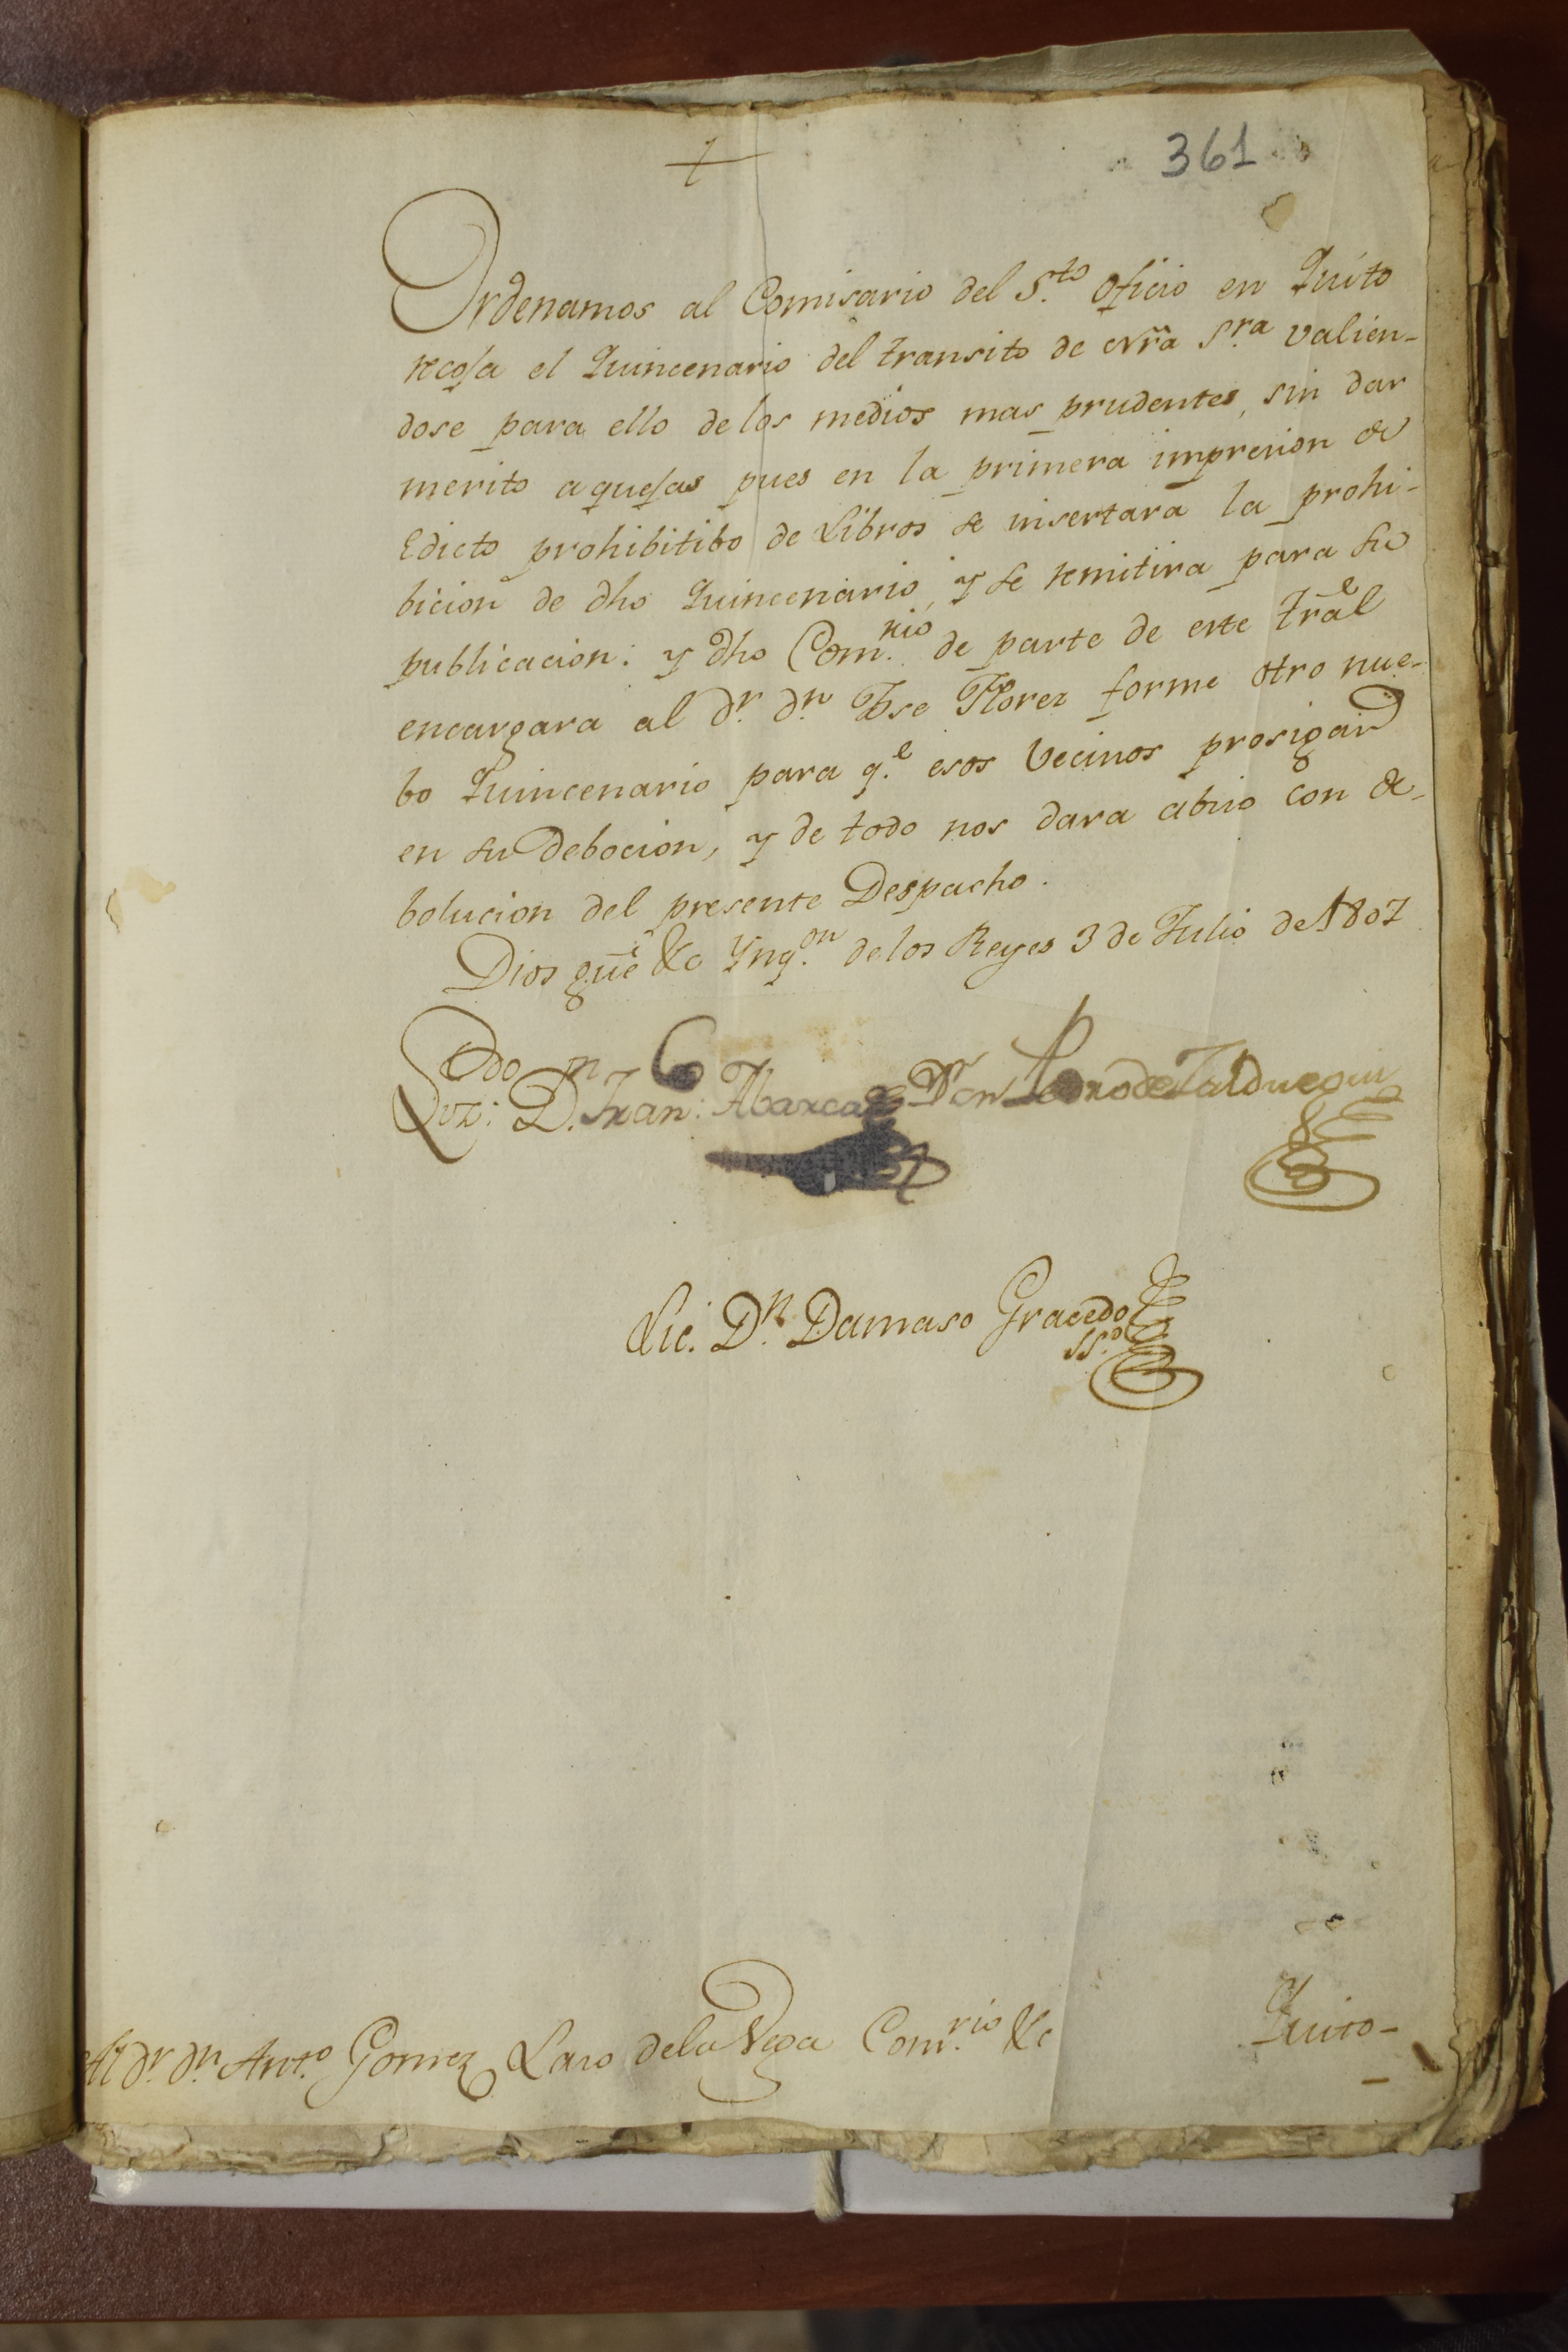 361
Ordenamos al Comisario del S.to Oficio en Quito
recoja el Quincenario del transito de nr̃a S.ra valien-
dose para ello de los medios mas prudentes, sin dar
merito a quejas pues en la primera impresion de
Edicto prohibitibo de Libros se insertara la prohi-
bicion de dho Quincenario, y se remitira para su
publicacion: y dho Com.rio de parte de este Trãl
encargara al d.r d.n Jose Florez forme otro nue-
bo Quincenario para q.e esos Vecinos prosigan
en su debocion, y de todo nos dara abiso con de-
bolucion del presente Despacho.
Dios gũe &c Ynq.on de los Reyes 3 de Julio de 1807
D.n Fran.co Abarca Don Pedro de Zalduegui
Lic. D.n Damaso Gracedo
SS.o
Al d.r d.n Ant.o Gomez Laso de la Vega Com.rio &c Quito-